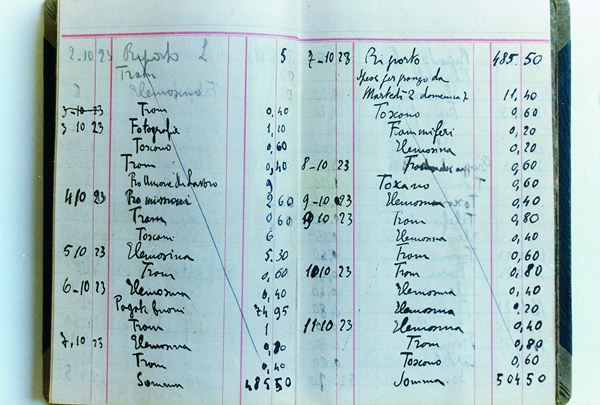 2-10 23 Riporto L 5
Tram
Elemosina
3-10 23 Tram 0,40
3-10 23 Fotografie 1,10
Toscano 0,60
Tram 0,40
Pro Unione di Lavoro 9
4/10 23 Pro missioni 2 60
Tram 0 60
Toscani 6
5/10 23 Elemosina 5.30
Tram 0,60
6-10 23 Elemosina 0,40
Pagate buoni 74 95
Tram 1
7,10 23 Elemosina 0,80
Tram 0,40
Somma 485 50
7-10 23 Riporto 485.50
Spese per pranzo da
Martedì 2 domenica 7 11,40
Toscano 0,60
Fiammiferi 0,20
Elemosina 0,20
8-10 23 0,60
Toscano 0,60
9-10 23 Elemosina 0,40
9-10 23 Tram 0,80
Elemosina 0,40
Tram 0,60
10-10 23 Tram 0,80
Elemosina 0,40
Elemosina 0,20
11-10 23 Elemosina 0,40
Tram 0,80
Toscano 0,60
Somma 504 50